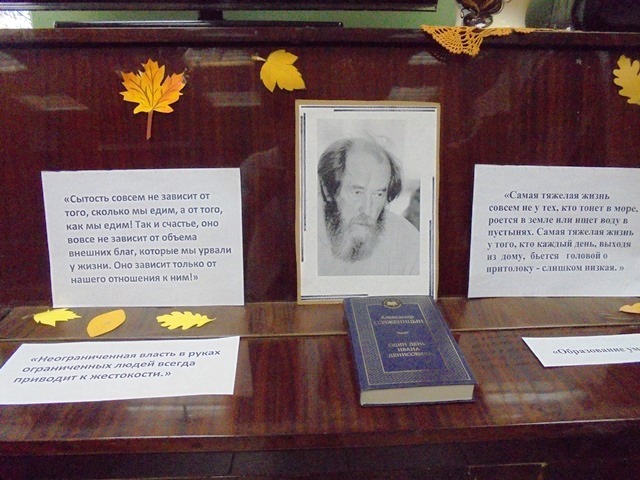 «Сытость совсем не зависит от
того, сколько мы едим, а от того,
как мы едим! Так и счастье, оно
вовсе не зависит от объема
внешних благ, которые мы урвали
у жизни. Оно зависит только от
нашего отношения к ним!»
«Самая тяжелая жизнь
совсем не у тех, кто тонет в море,
роется в земле или ищет воду в
пустынях. Самая тяжелая жизнь
у того, кто каждый день, выходя
из дому, бьется головой о
притолоку - слишком низкая. »
«Неограниченная власть в руках
ограниченных людей всегда
приводит к жестокости.»
Александр
СОЛЖЕНИЦЫН
ОДИН ДЕНЬ
ИВАНА
ДЕНИСОВИЧА
«Образование ум